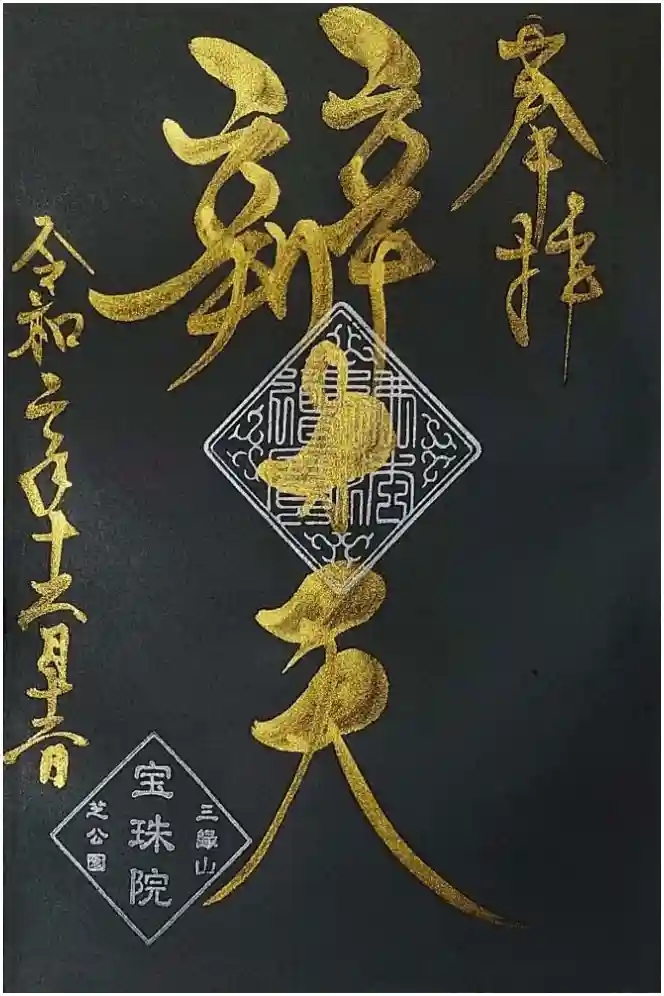 奉拝
辨才天
令和二年十二月
三縁山
宝珠院
芝公園